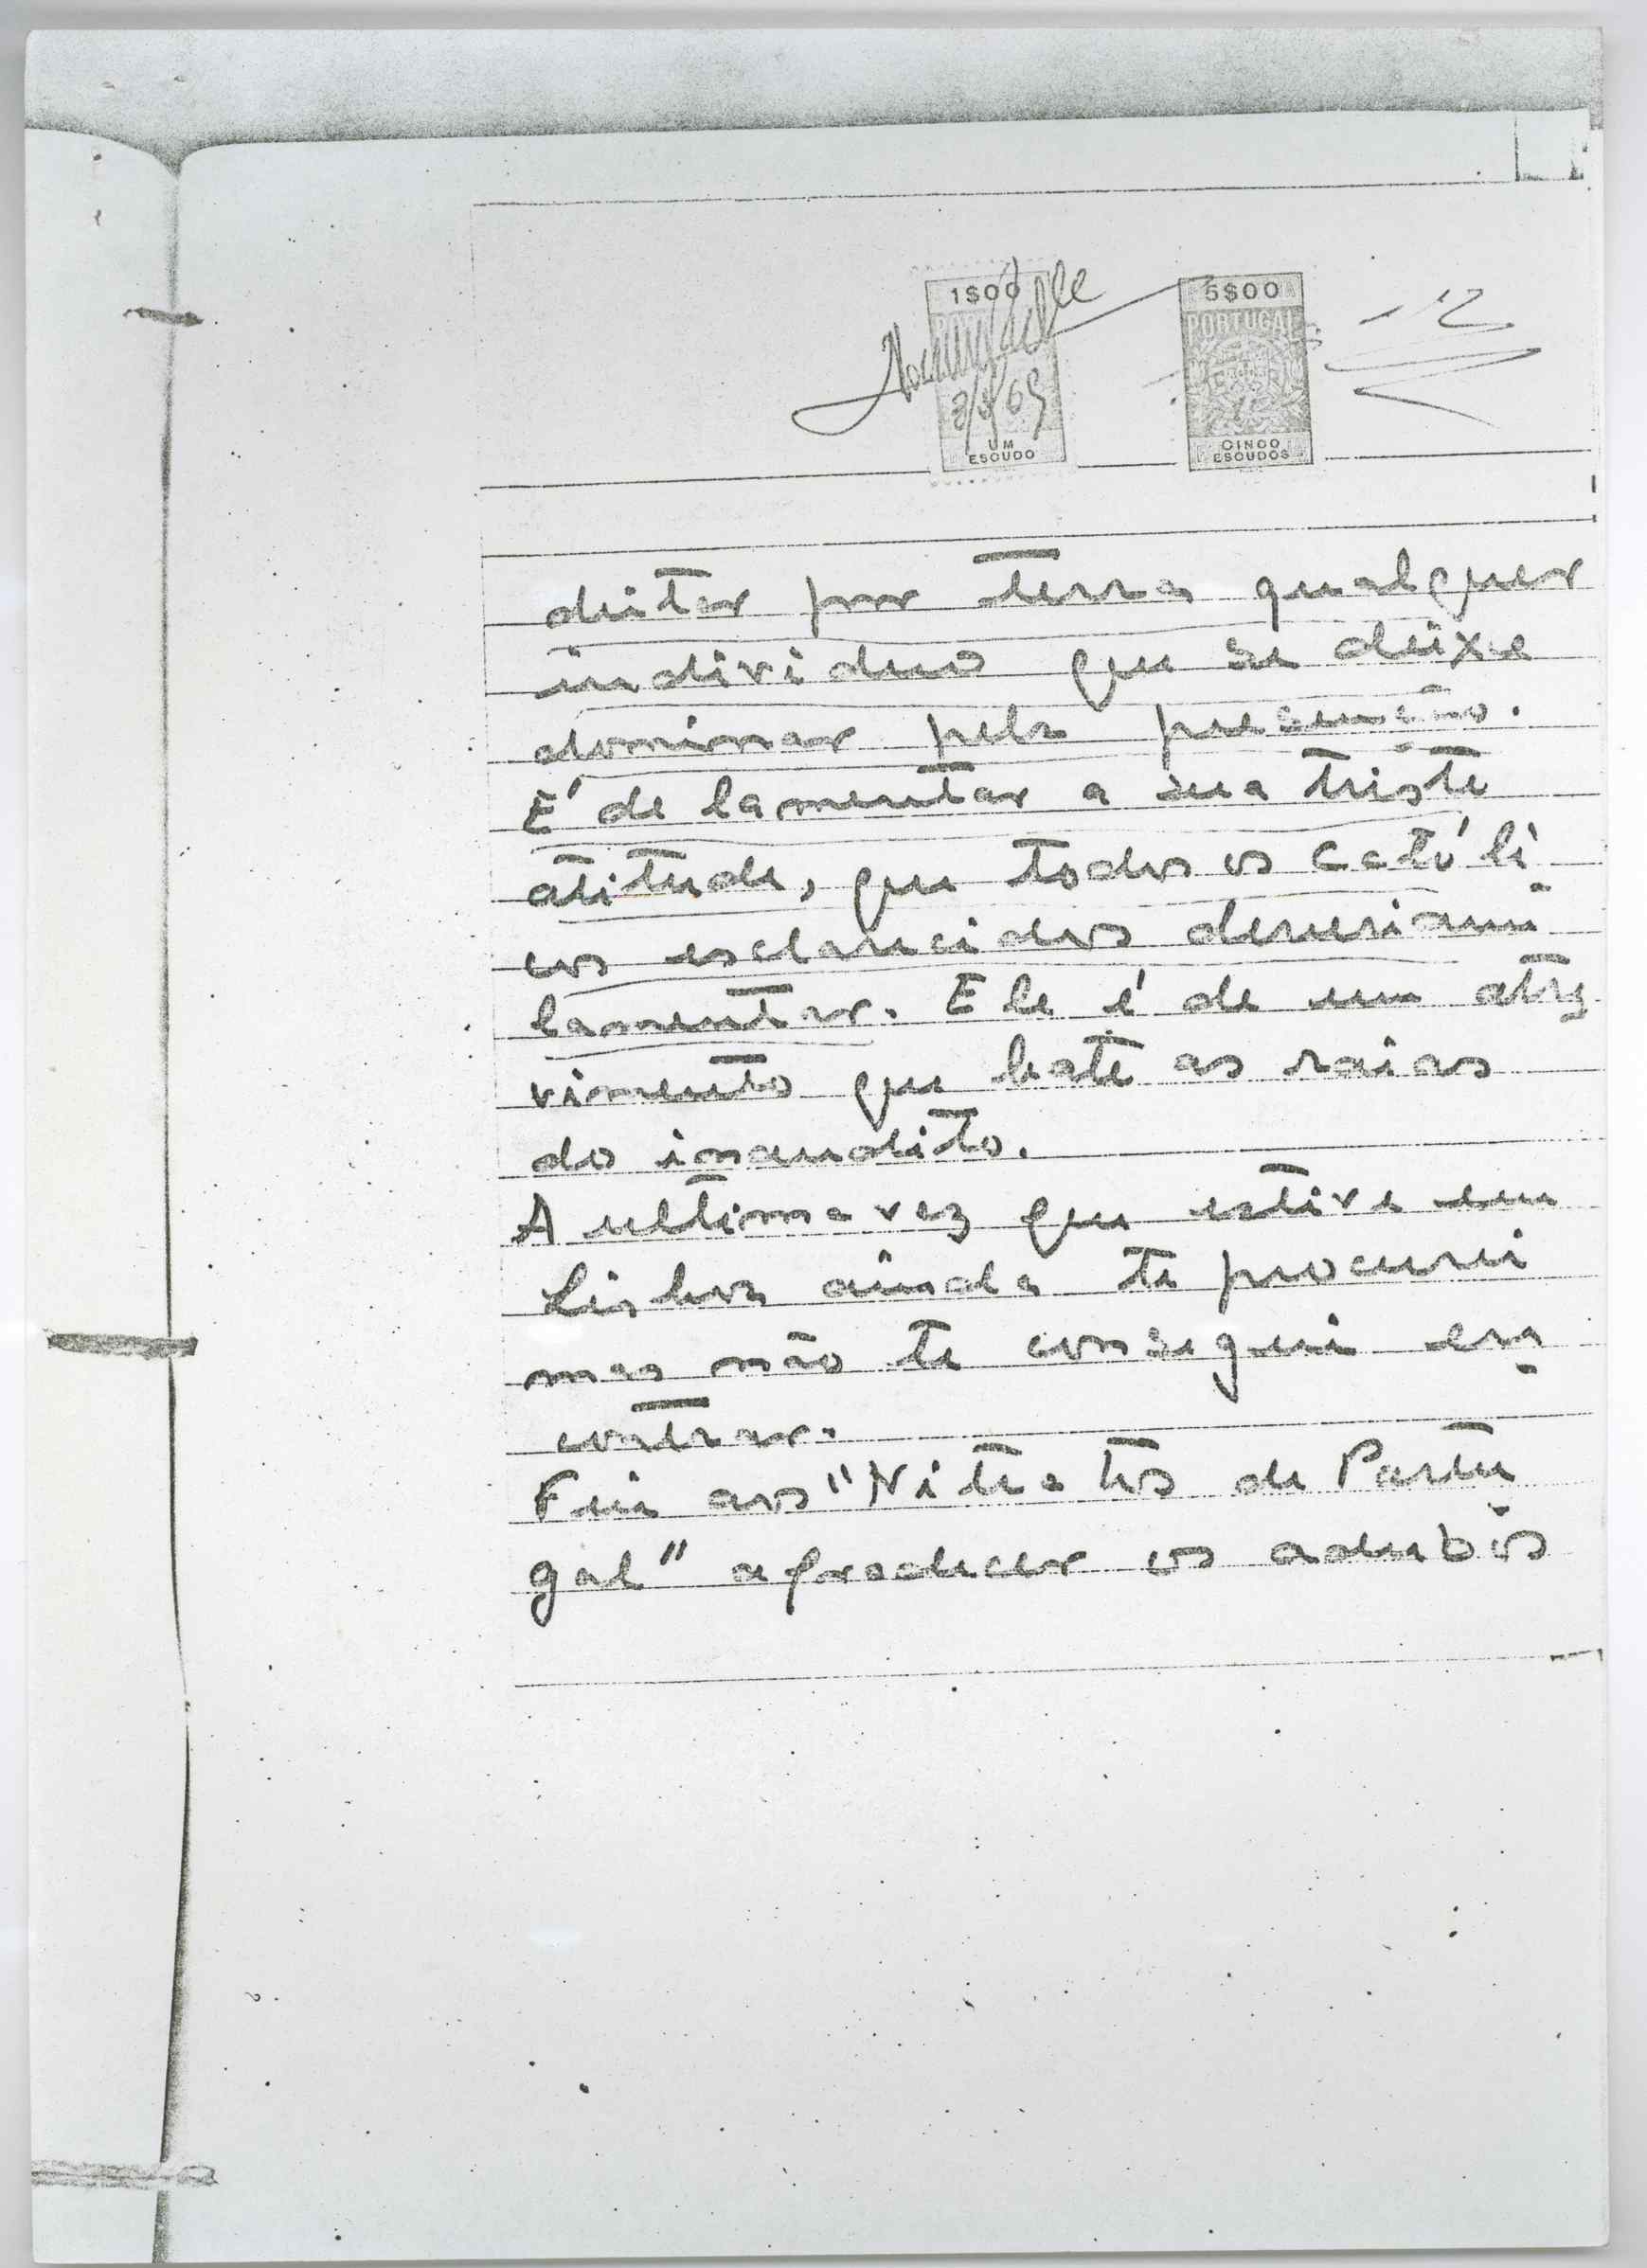 1$00
5$00
PORTUGAL
8/5/69
UM
ESCUDO
CINCO
ESCUDOS
deitar por terra qualquer
individuo que se deixe
dominar pela presunção.
E' de lamentar a sua triste
atitude, que todos os católi-
cos esclarecidos deveriam
lamentar. Ele é de um atre
vimento que bate as raias
do inaudito.
A ultima vez que estive em
Lisboa ainda te procurei
mas não te consegui en-
contrar.
Fui aos "Nitratos de Portu
gal" agradecer os adubos